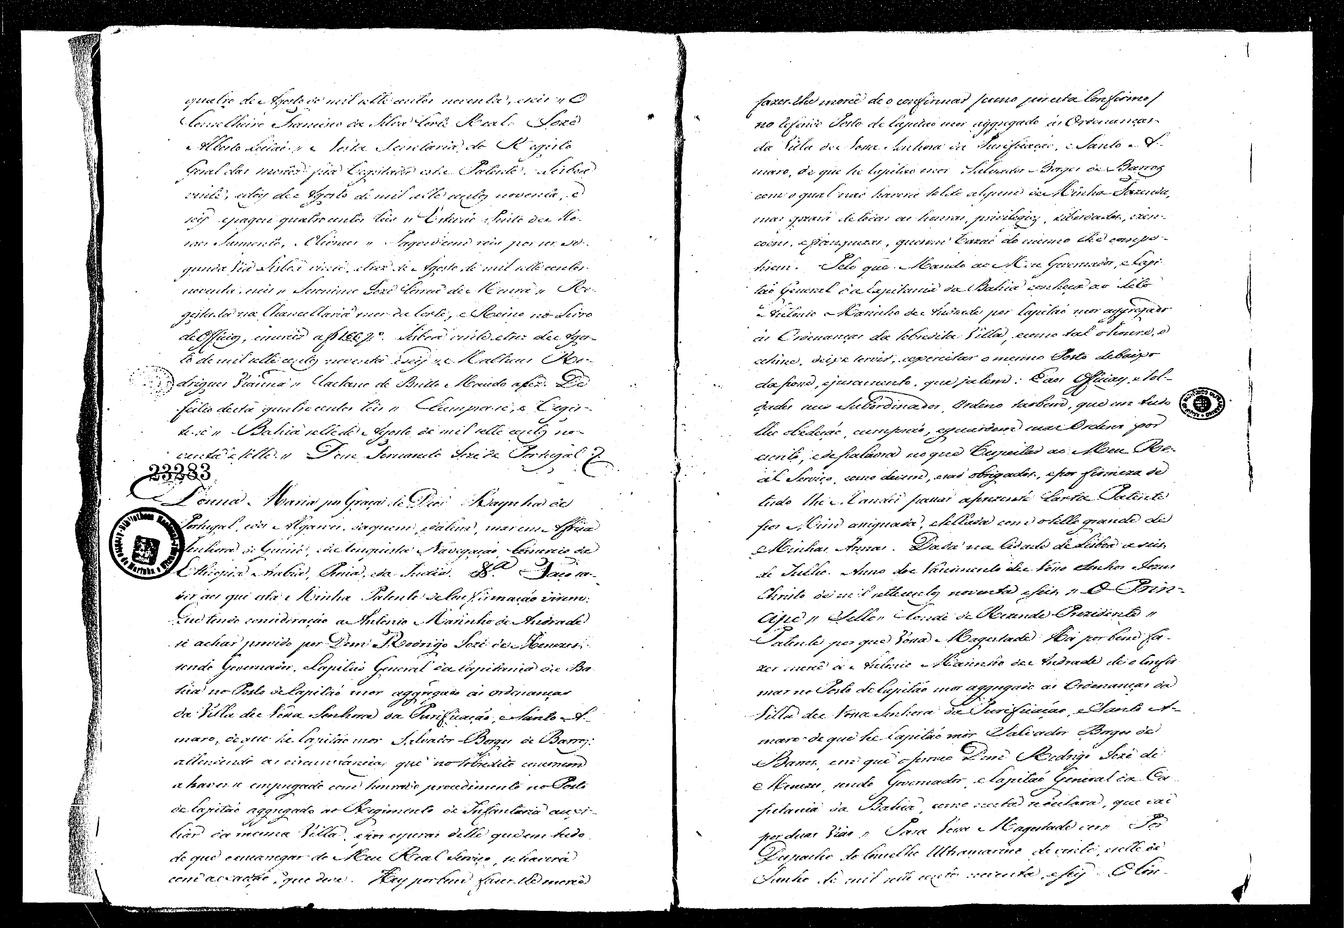 quatro de Agosto de mil sette centos noventa, e seis " O
Conselheiro Francisco da Silva Corte Real " José
Nesta Secretaria do Registo
Geral das mercês fica registada esta Patente. Lisboa
vinte, e dous de Agosto de mil sette centos noventa, e
seis e pagou quatro centos reis "
Agosto de mil sette centos
noventa, e seis " Jeronimo José
gistada na Chancellaria mor da Corte, e Reino no Livro
de Officios, e mercês a f Lisboa vinte, e tres de Agos-
to de mil sette centos noventa e seis " Matheus Ro-
drigues Vianna " Caetano de Britto a fez. De
feitio desta quatro centos reis " Cumpra-se, e regis-
te-se " Bahia sette de Agosto de mil sette centos no-
venta e sette " Dom Fernando José de Portugal
23283
Donna Maria por Graça de Deos Raynha de
Portugal, e dos Algarves, daquem, e dalem, mar em Affrica
Senhora de Guiné, e da Conquista Navegação, Comercio da
Ethiopia Arabia, Persia, e da India. &.ª Faço sa-
ber aos que esta Minha Patente de Confirmação virem;
Que tendo consideração a Antonio Marinho de Andrade
se achar provido por Dom Rodrigo José de Menezes,
sendo Governador, e Capitão General da Capitania da Ba-
hia no Posto de Capitão mor aggregado ás ordenanças
da Villa de Nossa Senhora da Purificação, e Santo A-
maro, de que he Capitão mor Salvador Borges de Barros;
attendendo as circunstancias, que no sobredito concorrem
a haver empregado com honrado procedimento no Posto
de Capitão aggregado ao Regimento de Infantaria auxi-
liar da mesma Villa, e por esperar delle que em tudo
de que o encarregar do Meu Real Serviço, se haverá
com a exacção, que deve. Hey por bem fazer-lhe mercê
fazer-lhe mercê de o confirmar /como por esta Confirmo/
no referido Posto de Capitão mor aggregado ás Ordenanças
da Villa de Nossa Senhora da Purificação, e Santo A-
maro, de que he Capitão mor Salvador Borges de Barros
com o qual não haverá soldo algum da Minha Fazenda,
mas gozará de todas as honras, privilegios, liberdades, izen-
coens, e franquezas, que em razão do mesmo lhe compe-
tirem. Pelo que Mando ao Meu Governador, e Capi-
tão General da Capitania da Bahia conheça ao dito
Antonio Marinho de Andrade por Capitão mor aggregado
ás Ordenanças da sobredita Villa, e como tal o honre, e
estime, deixe servir, e exercitar o mesmo Posto debaixo
da posse, e juramento, que já tem: E aos Officiaes, e Sol-
dados seus Subordinados, Ordeno tambem, que em tudo
lhe obedeção, cumprão, e guardem suas Ordens por
escrito, e de palavra no que respeitar ao Meu Re-
al Serviço, como devem, e são obrigados, e por firmeza de
tudo lhe Mandei passar a prezente Carta Patente
por Mim assignada, e Sellada com o sello grande de
Minhas Armas. Dada na Cidade de Lisboa a seis
de Julho. Anno do Nascimento de Nosso Senhor Jesus
Christo de mil sette centos noventa e seis " O Prin-
cipe " Sello " Conde de Rezende Prezidente "
Patente por que Vossa Magestade Há por bem fa-
zer mercê a Antonio Marinho de Andrade de o confir
mar no Posto de Capitão mor aggregado ás Ordenanças da
Villa de Nossa Senhora da Purificação, e Santo A-
maro de que he Capitão mor Salvador Borges de
Barros, em que o proveo Dom Rodrigo José de
Menezes, sendo Governador, e Capitão General da Ca-
pitania da Bahia, como nesta se declara, que vai
por duas Vias " Para Vossa Magestade ver " Por
Despacho do Conselho Ultramarino de vinte, e sette de
Junho de mil sette centos noventa, e seis